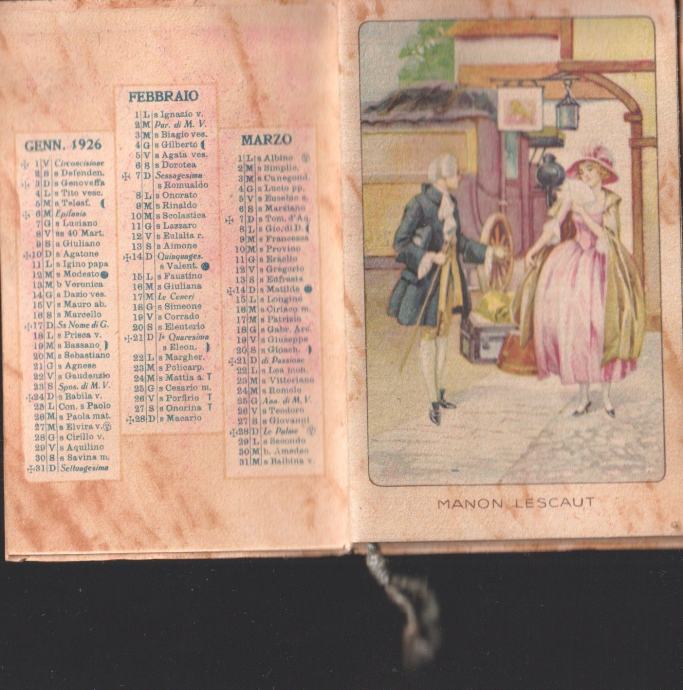 GENN. 1926
✠ 1 V Circoncisione
2 S s Defenden.
✠ 3 D s Genoveffa
4 L s Tito vesc.
5 M s Telesf.
✠ 6 M Epifania
7 G s Luciano
8 V ss 40 Mart.
9 S s Giuliano
✠10 D s Agatone
11 L s Igino papa
12 M s Modesto
13 M b Veronica
14 G s Dazio ves.
15 V s Mauro ab.
16 S s Marcello
✠17 D Ss Nome di G.
18 L s Prisca v.
19 M s Bassano
20 M s Sebastiano
21 G s Agnese
22 V s Gaudenzio
23 S Spos. di M. V.
✠24 D s Babila v.
25 L Con. s Paolo
26 M s Paola mat.
27 M s Elvira v.
28 G s Cirillo v.
29 V s Aquilino
30 S s Savina m.
✠31 D Settuagesima
FEBBRAIO
1 L s Ignazio v.
2 M Pur. di M. V.
3 M s Biagio ves.
4 G s Gilberto
5 V s Agata ves.
6 S s Dorotea
✠ 7 D Sessagesima
s Romualdo
8 L s Onorato
9 M s Rinaldo
10 M s Scolastica
11 G s Lazzaro
12 V s Eulalia r.
13 S s Aimone
✠14 D Quinquages.
s Valent.
15 L s Faustino
16 M s Giuliana
17 M Le Ceneri
18 G s Simeone
19 V s Corrado
20 S s Eleuterio
✠21 D Iª Quaresima
s Eleon.
22 L s Margher.
23 M s Policarp.
24 M s Mattia a. T
25 G s Cesario m.
26 V s Porfirio T
27 S s Onorina T
✠28 D s Macario
MARZO
1 L s Albino
2 M s Simplic.
3 M s Cunegond.
4 G s Lucio pp.
5 V s Eusebio s.
6 S s Marziano
✠ 7 D s Tom. d'Aq.
8 L s Gio. di D.
9 M s Francesca
10 M s Provino
11 G s Eraclio
12 V s Gregorio
13 S s Eufrasia
✠14 D s Matilde
15 L s Longino
16 M s Ciriaco m.
17 M s Patrizio
18 G s Gabr. Arc.
19 V s Giuseppe
20 S s Gioach.
✠21 D di Passione
22 L s Lea mon.
23 M s Vittoriano
24 M s Romolo
25 G Ann. di M. V.
26 V s Teodoro
27 S s Giovanni
✠28 D Le Palme
29 L s Secondo
30 M b. Amedeo
31 M s Balbina v.
MANON LESCAUT